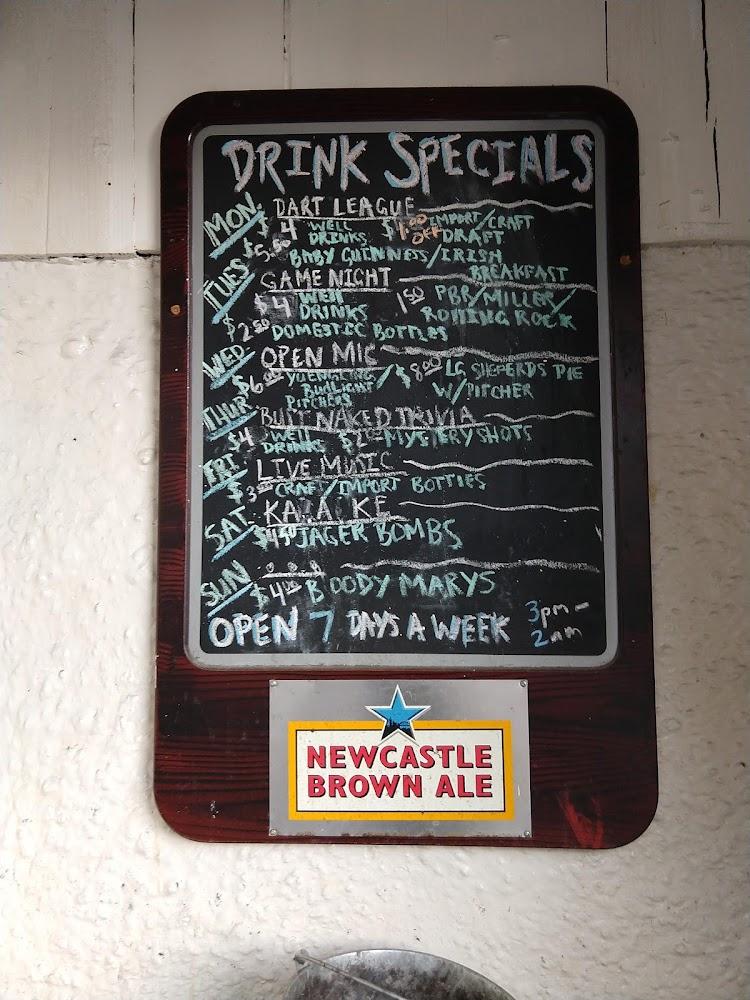 DRINK SPECIALS
MON DART LEAGUE
$4 WELL DRINKS $1.00 OFF IMPORT/CRAFT DRAFT
$5.50 BABY GUINNESS/IRISH BREAKFAST
TUES GAME NIGHT
$4 WELL DRINKS 1.50 PBR/MILLER/ROLLING ROCK
$2.50 DOMESTIC BOTTLES
WED OPEN MIC
$6.00 YUENGLING BUDLIGHT PITCHERS / $8.00 LG SHEPERDS PIE W/PITCHER
THUR BUTT NAKED TRIVIA
$4 WELL DRINKS MYSTERY SHOTS
FRI LIVE MUSIC
CRAFT/IMPORT BOTTLES
SAT KA A KE
JAGER BOMBS
SUN
$4.00 B OODY MARYS
OPEN 7 DAYS A WEEK 3pm-2am
NEWCASTLE
BROWN ALE